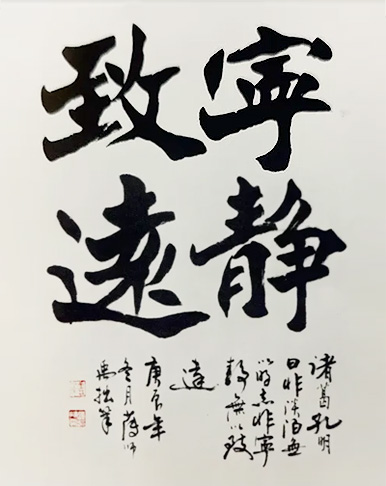 寧静
致遠
諸葛孔明
曰非淡泊無
以明志非寧
静無以致
遠
庚辰年
冬月
拙筆